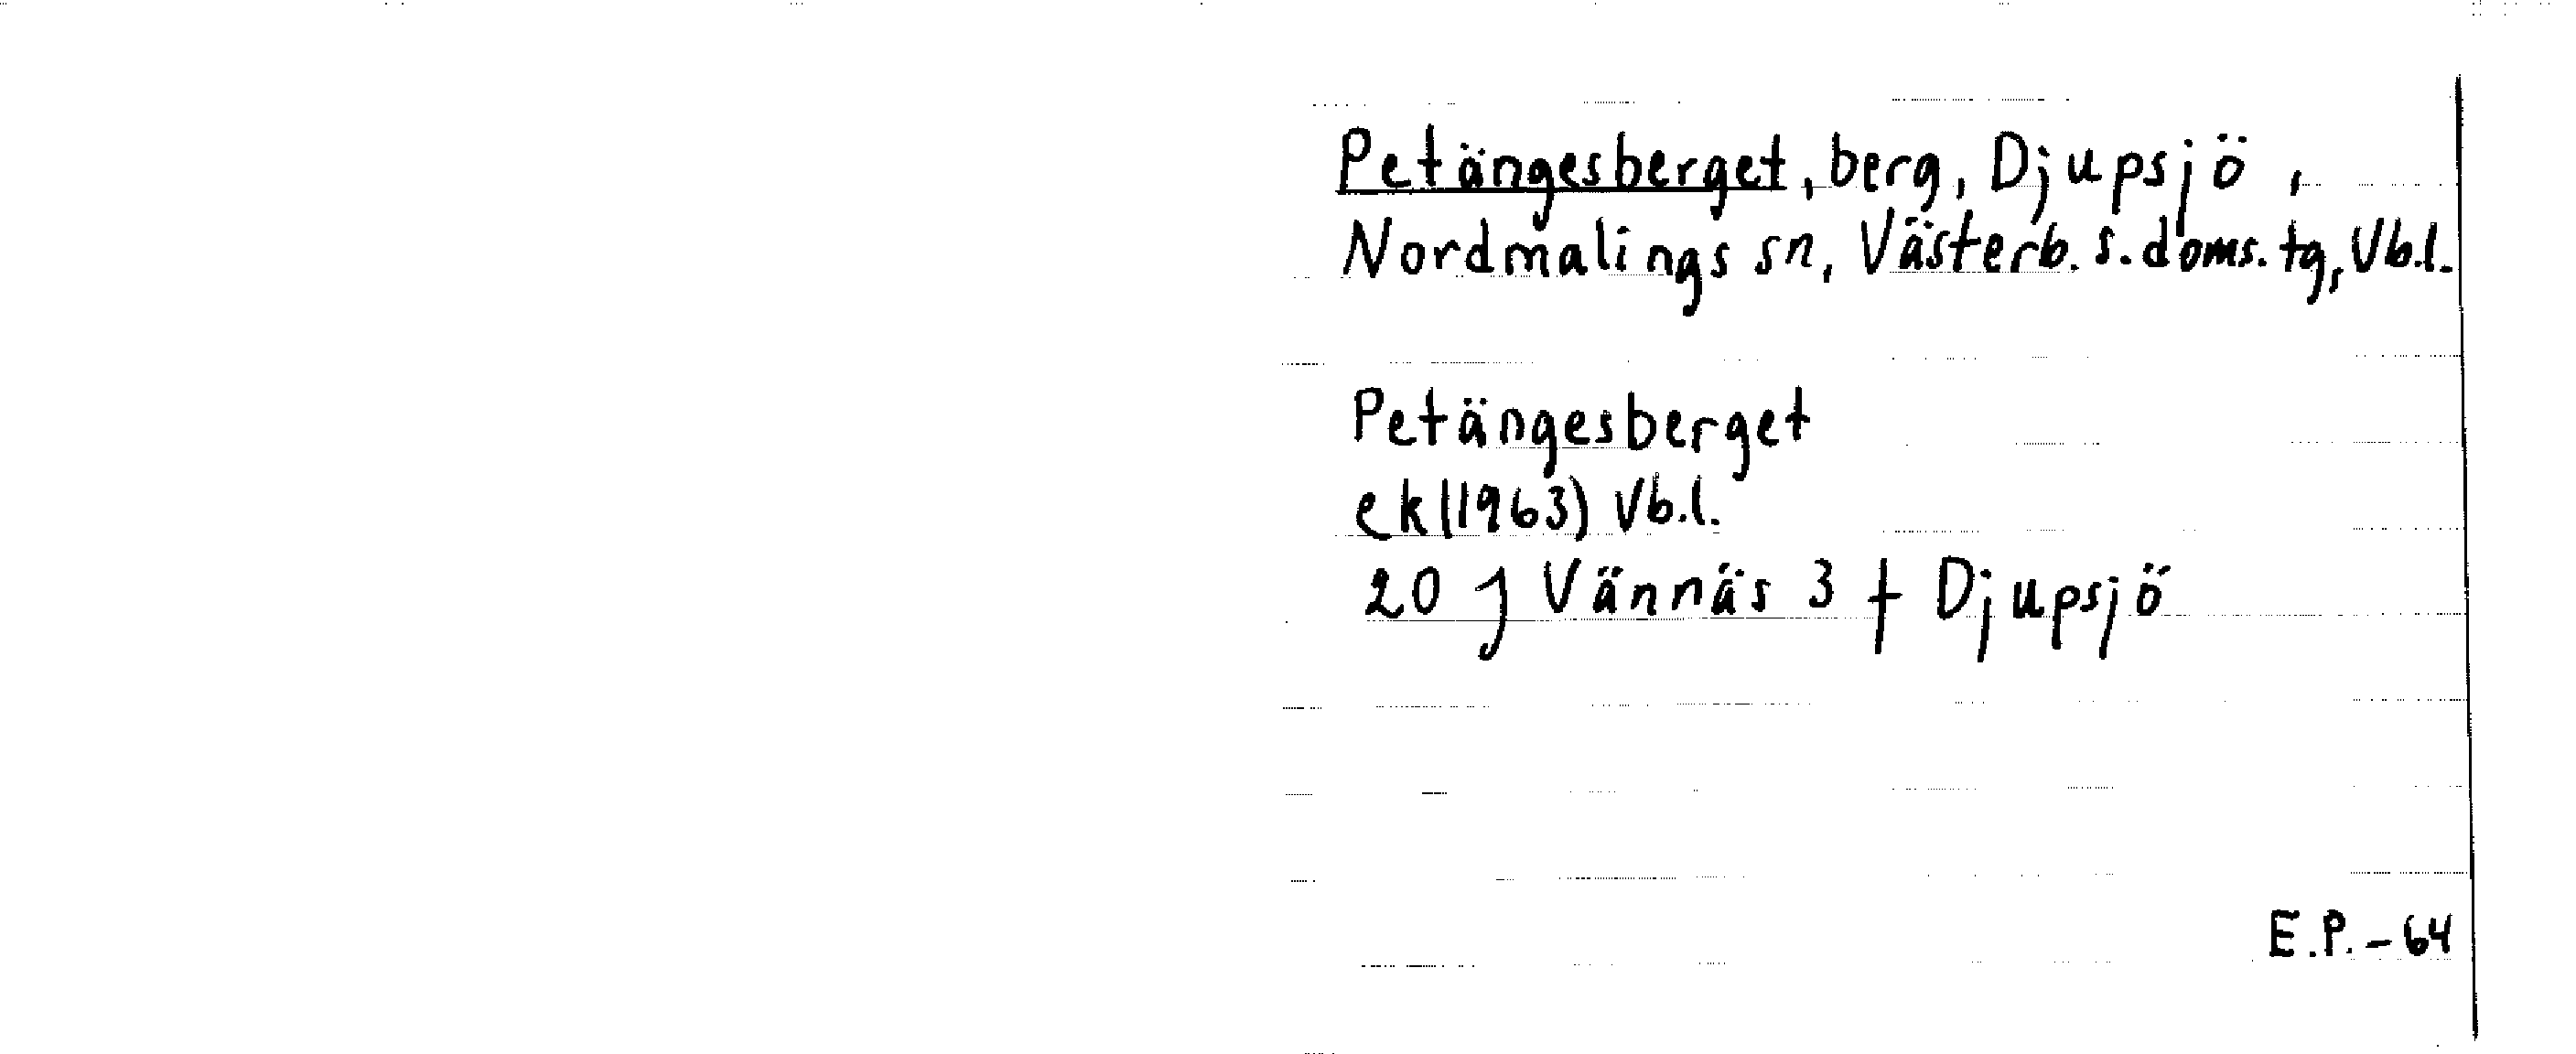 Petängesberget, berg, Djupsjö,
Nordmalings sn, Västerb. s. doms. tg, Vb.l.
Petängesberget
ek(1963) Vb.l.
20 J Vännäs 3 f Djupsjö
E.P. - 64